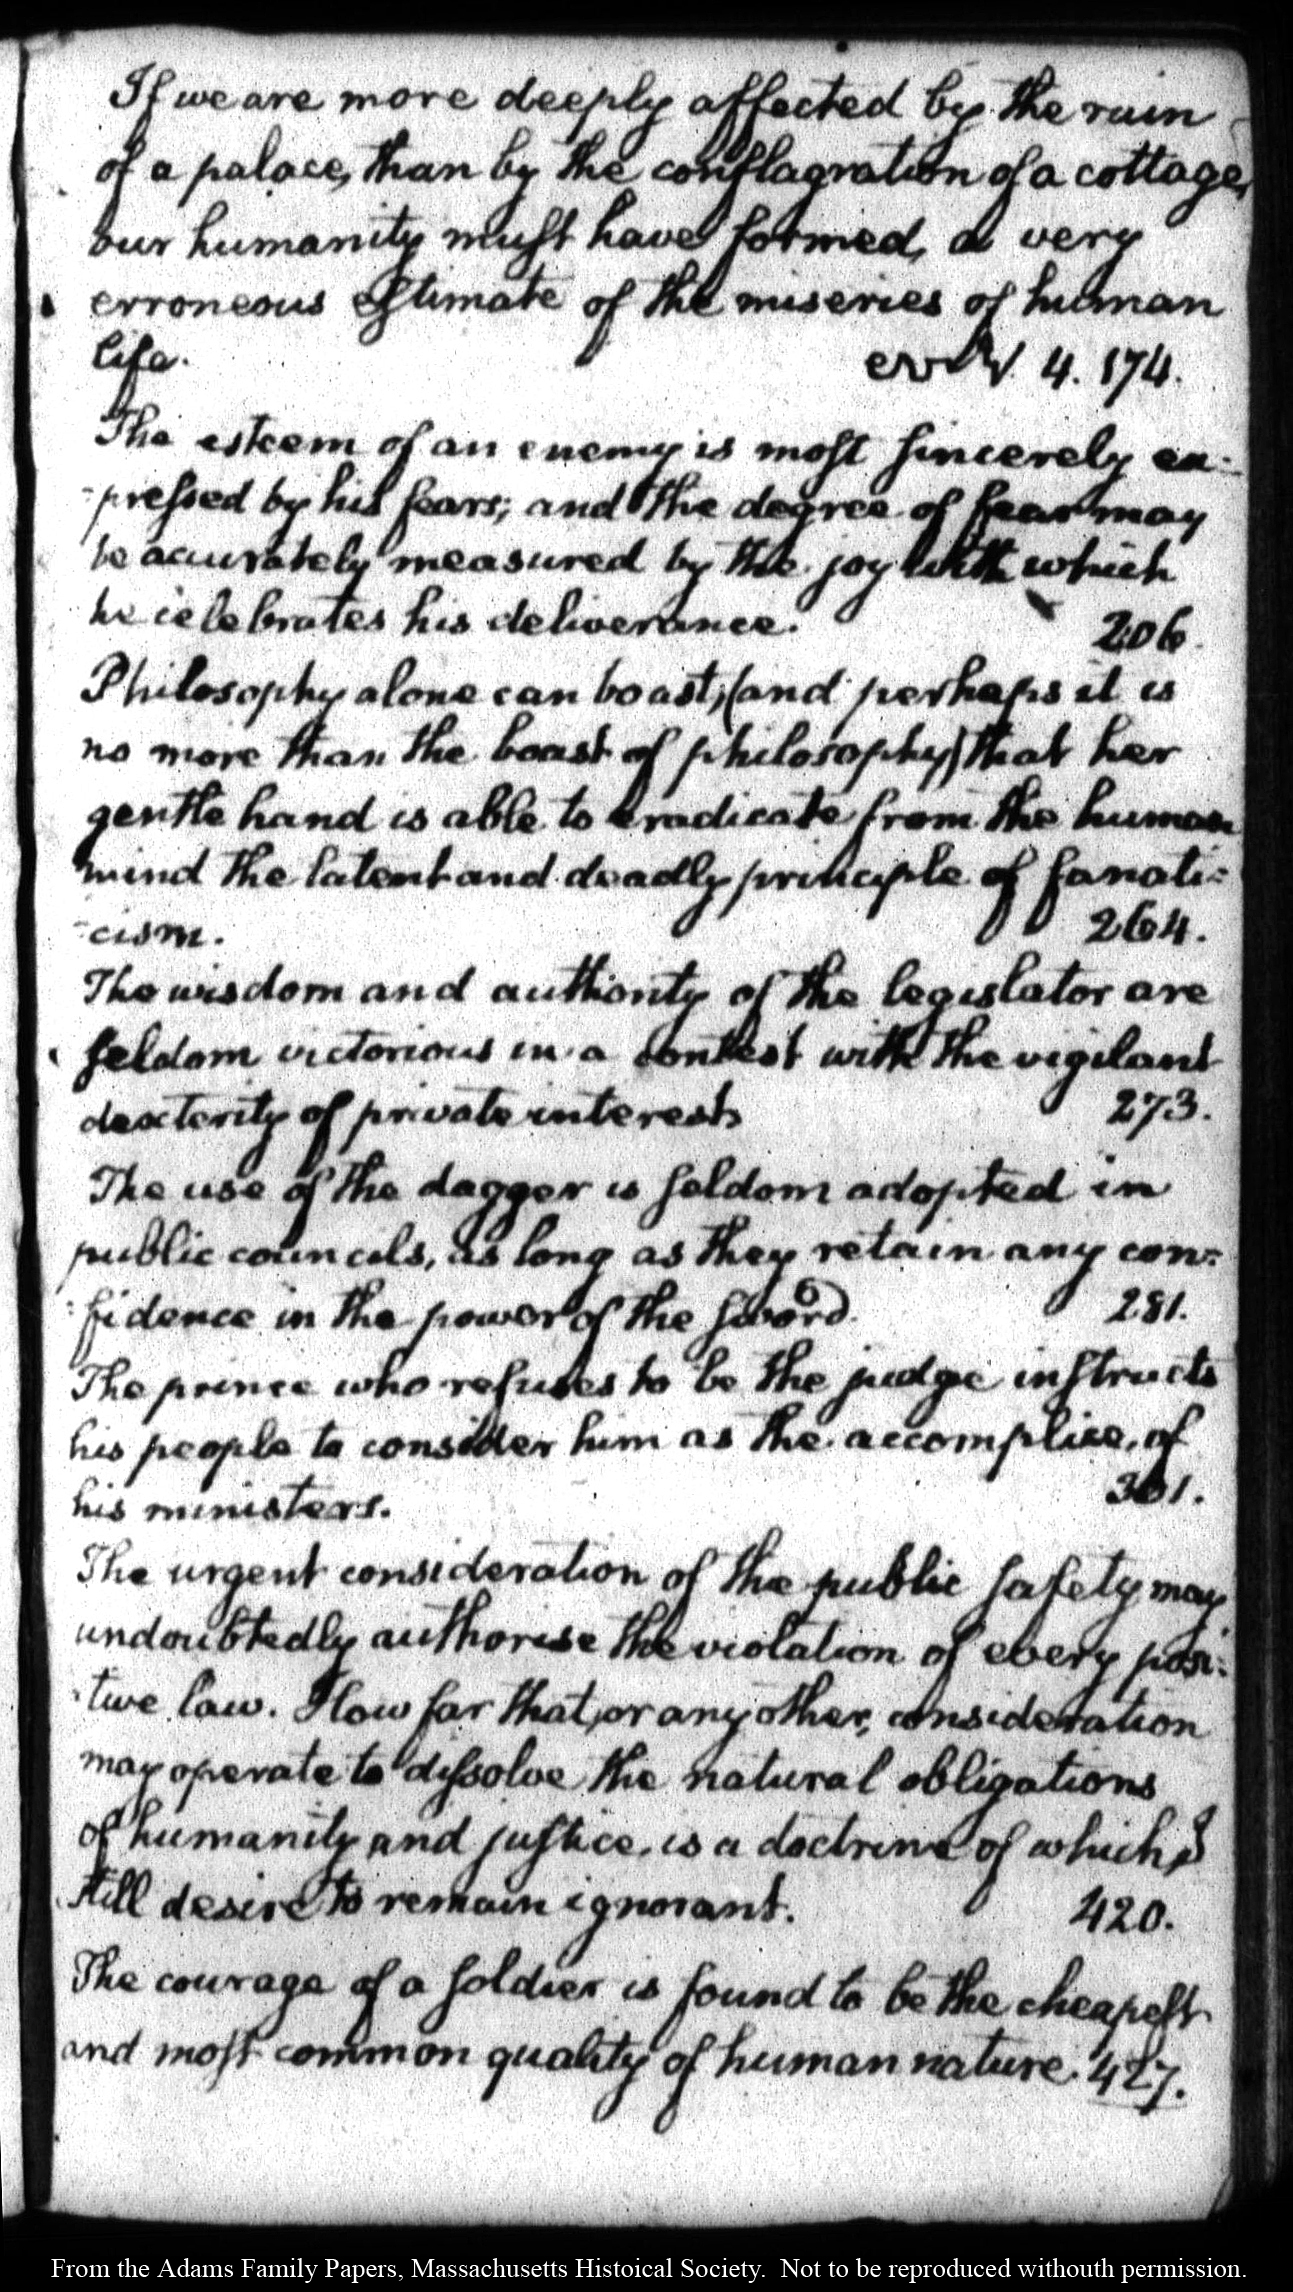 If we are more deeply affected by the ruin
of a palace, than by the conflagration of a cottage,
our humanity must have formed, a very
erroneous estimate of the miseries of human
life. V. 4. 174.
The esteem of an enemy is most sincerely ex-
-pressed by his fears; and the degree of fear may
be accurately measured by the joy with which
he celebrates his deliverance. 206.
Philosophy alone can boast, (and perhaps it is
no more than the boast of philosophy) that her
gentle hand is able to eradicate from the human
mind the latent and deadly principle of fanati=
-cism. 264.
The wisdom and authority of the legislator are
seldom victorious in a contest with the vigilant
dexterity of private interest 273.
The use of the dagger is seldom adopted in
public councils, as long as they retain any con=
=fidence in the power of the sword. 281.
The prince who refuses to be the judge instructs
his people to consider him as the accomplice, of
his ministers. 301.
The urgent consideration of the public safety may
undoubtedly authorise the violation of every posi=
-tive law. How far that, or any other, consideration
may operate to dissolve the natural obligations
of humanity and justice, is a doctrine of which I
still desire to remain ignorant. 420.
The courage of a soldier is found to be the cheapest
and most common quality of human nature. 427.
From the Adams Family Papers, Massachusetts Histoical Society. Not to be reproduced withouth permission.